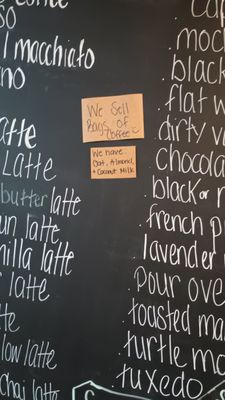 ce
so
l macchiato
no
atte
Latte
butter latte
un latte
nilla latte
r latte
te
low latte
chai latte
We Sell
Bags of
Coffee
We have
Oat, Almond,
+ Coconut Milk
cap
moch
black
flat w
dirty v
chocola
black or
french p
lavender
pour ove
toasted ma
turtle mo
tuxedo